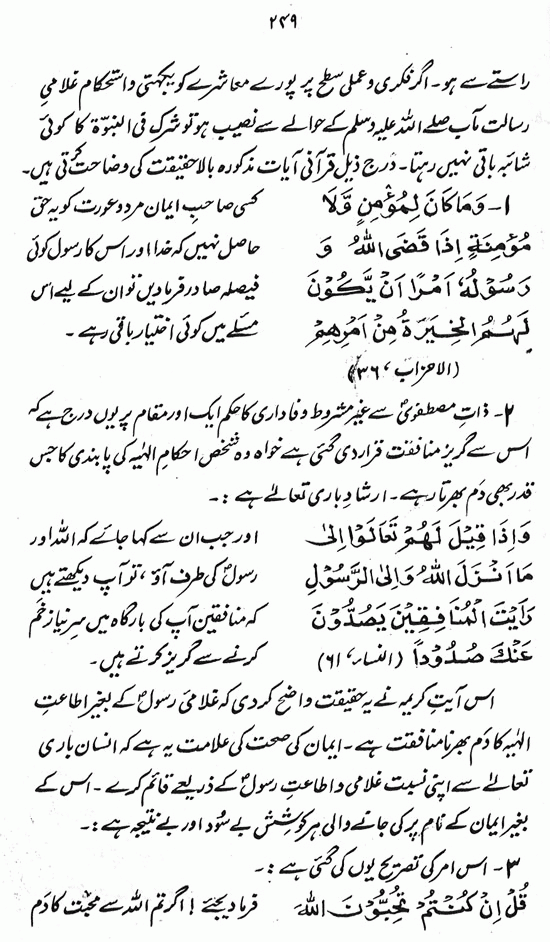 ۲۴۹
راستے سے ہو۔ اگر فکری و عملی سطح پر پورے معاشرے کو یکجہتی و استحکام غلامیِ
رسالت مآب صلے اللہ علیہ وسلم کے حوالے سے نصیب ہو تو شرک فی النبوّۃ کا کوئی
شائبہ باقی نہیں رہتا۔ درج ذیل قرآنی آیات مذکورہ بالا حقیقت کی وضاحت کرتی ہیں۔
۱۔ وَمَا كَانَ لِمُؤْمِنٍ وَّلَا
مُؤْمِنَةٍ إِذَا قَضَى اللهُ وَ
رَسُوْلُهٗ اَمْرًا اَنْ يَّكُوْنَ
لَهُمُ الْخِيَرَةُ مِنْ اَمْرِهِمْ
(الاحزاب، ۳۶)
کسی صاحبِ ایمان مرد و عورت کو یہ حق
حاصل نہیں کہ خدا اور اس کا رسول کوئی
فیصلہ صادر فرمادیں تو ان کے لیے اس
مسئلے میں کوئی اختیار باقی رہے ۔
۲۔ ذاتِ مصطفویؐ سے غیر مشروط وفاداری کا حکم ایک اور مقام پر یوں درج ہے کہ
اس سے گریز منافقت قرار دی گئی ہے خواہ وہ شخص احکامِ الٰہیہ کی پابندی کا جس
قدر بھی دَم بھرتا رہے۔ ارشادِ باری تعالےٰ ہے :۔
وَاِذَا قِيْلَ لَهُمْ تَعَالَوْا اِلىٰ
مَا اَنْزَلَ اللهُ وَاِلىَ الرَّسُوْلِ
رَاَيْتَ الْمُنَافِقِيْنَ يَصُدُّوْنَ
عَنْكَ صُدُوْداً (النساء، ۶۱)
اور جب ان سے کہا جائے کہ اللہ اور
رسولؐ کی طرف آؤ، تو آپ دیکھتے ہیں
کہ منافقین آپ کی بارگاہ میں سرِنیاز خَم
کرنے سے گریز کرتے ہیں۔
اس آیتِ کریمہ نے یہ حقیقت واضح کر دی کہ غلامیِ رسولؐ کے بغیر اطاعتِ
الٰہیہ کا دَم بھرنا منافقت ہے۔ ایمان کی صحت کی علامت یہ ہے کہ انسان باری
تعالےٰ سے اپنی نسبت غلامی و اطاعتِ رسولؐ کے ذریعے قائم کرے ۔ اس کے
بغیر ایمان کے نام پر کی جانے والی ہر کوشش بے سُود اور بے نتیجہ ہے :۔
۳۔ اس امر کی تصریح یوں کی گئی ہے :۔
قُلْ اِنْ كُنْتُمْ تُحِبُّوْنَ اللهَ
فرما دیجئے ! اگر تم اللہ سے محبّت کا دَم